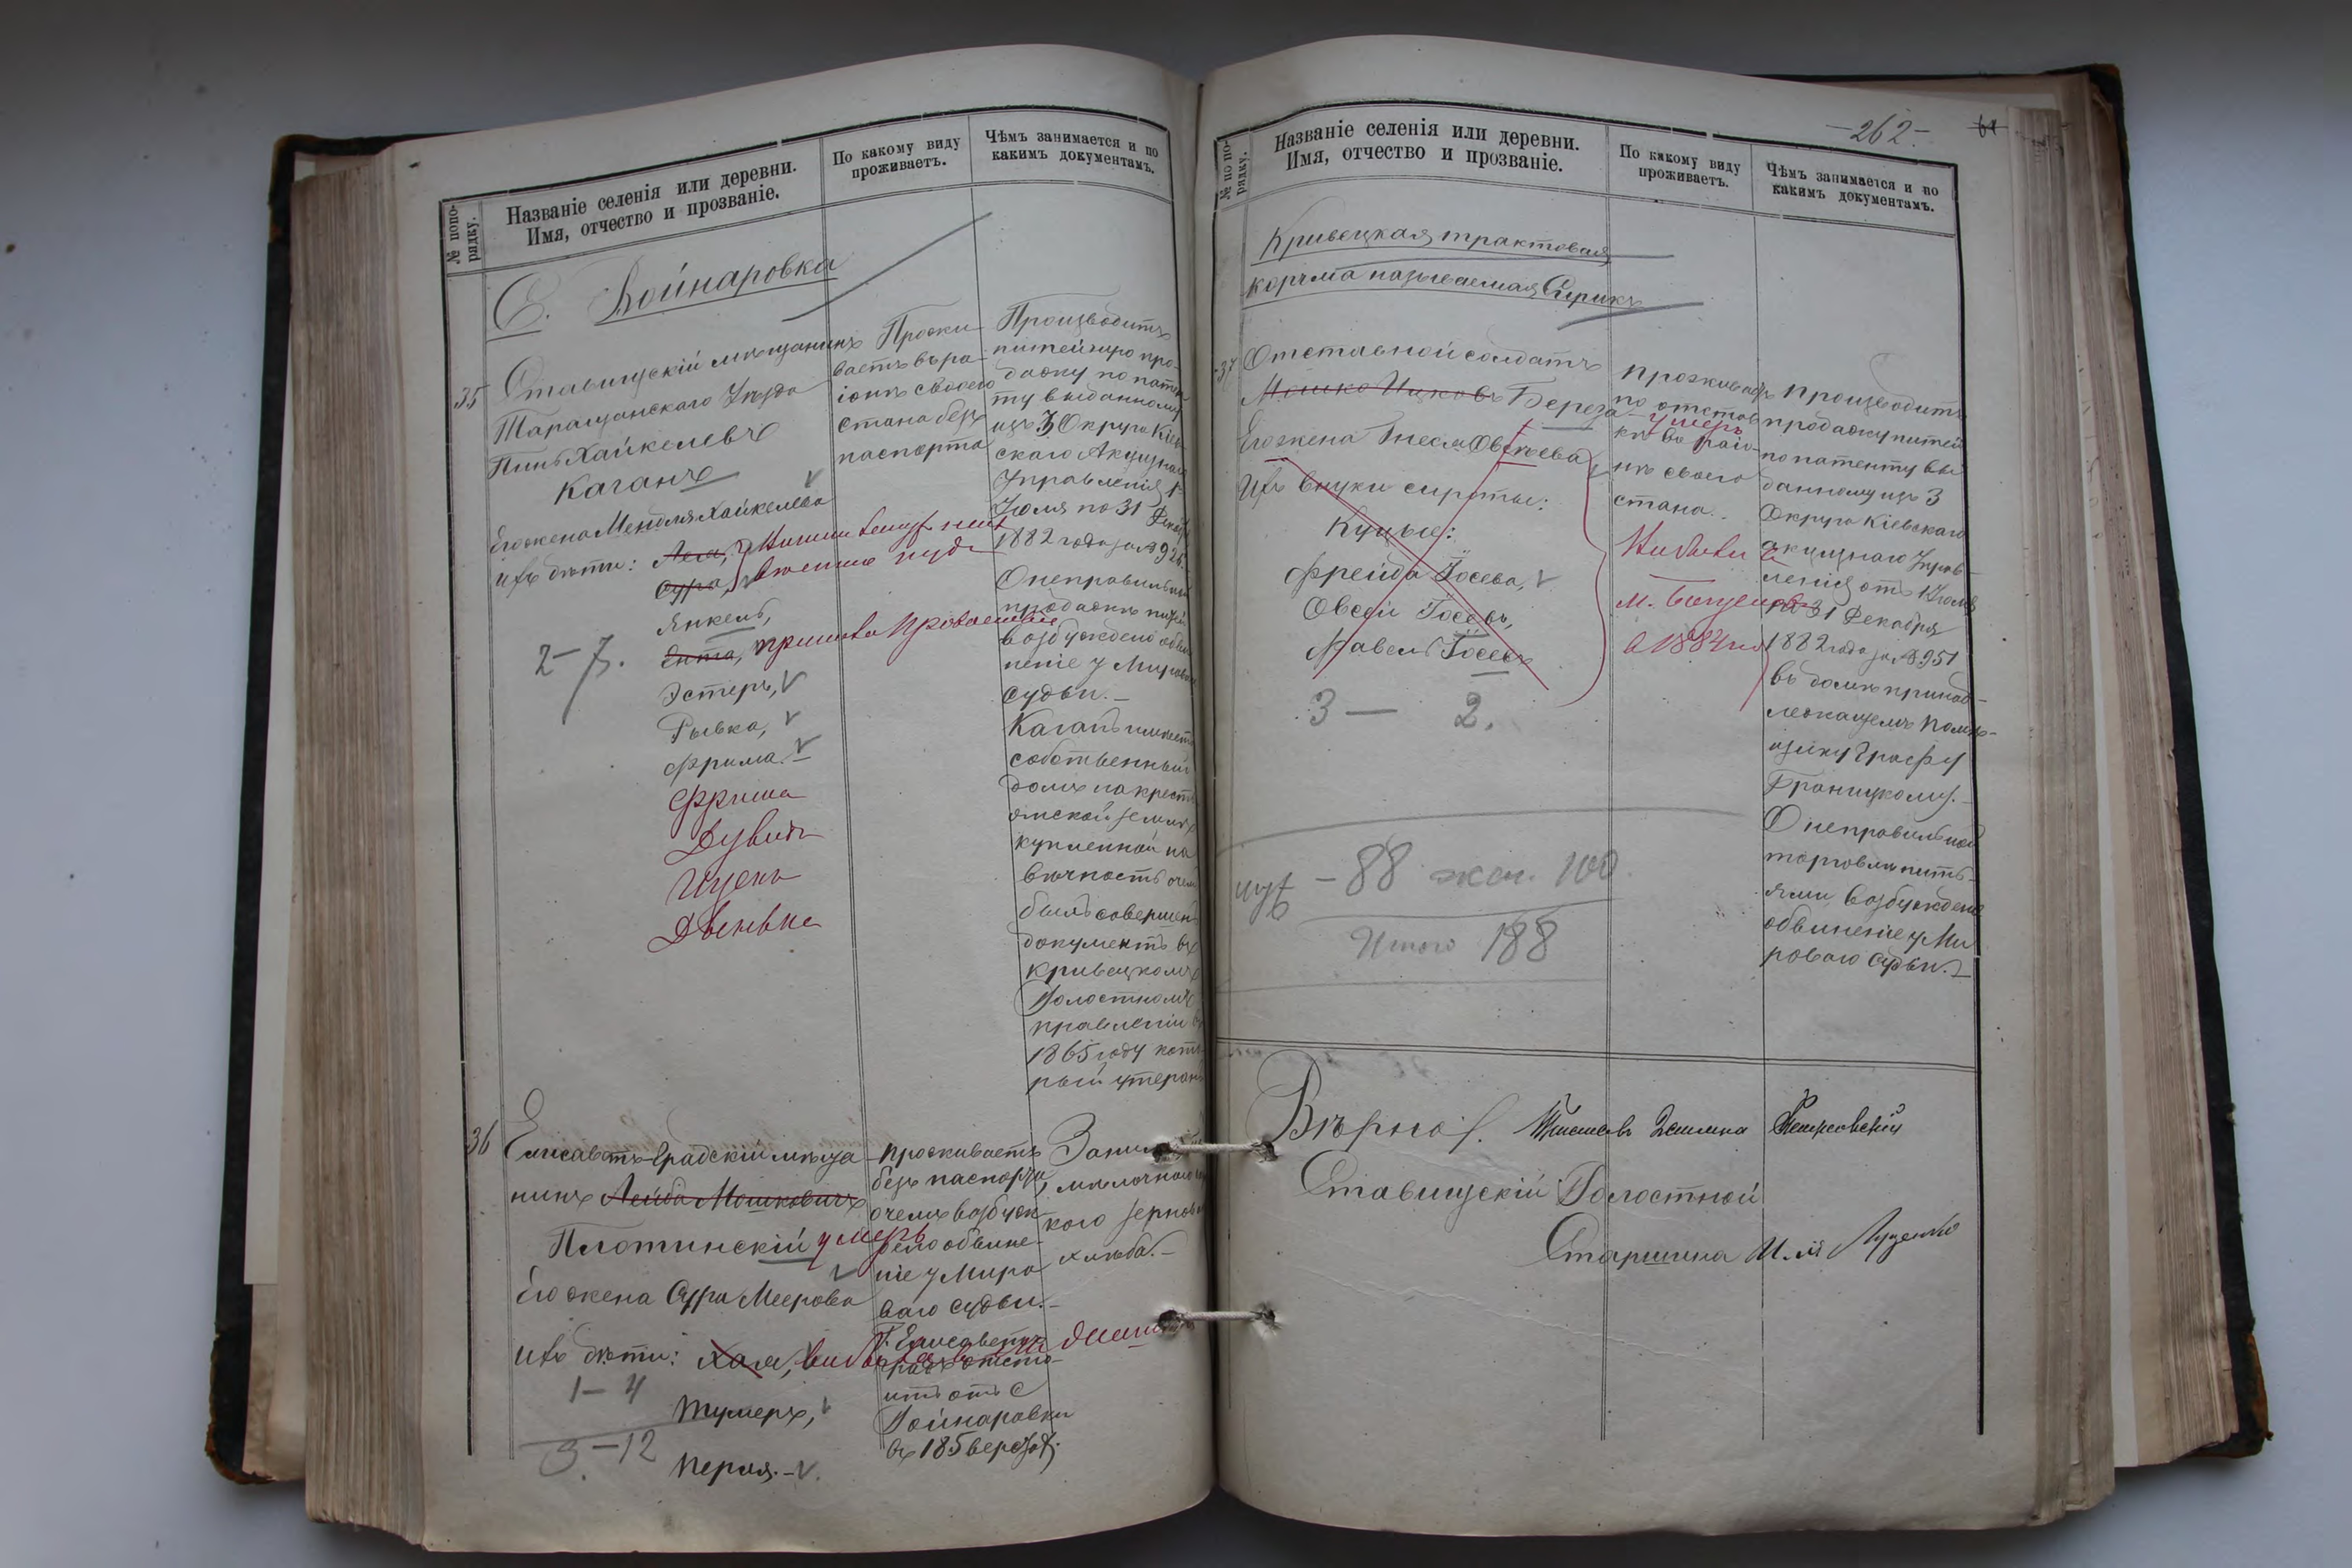 № попо-
рядку.
Названіе селенія или деревни.
Имя, отчество и прозваніе.
По какому виду
проживаетъ.
Чѣмъ занимается и по
какимъ документамъ.
С. Войнаровка
35
Ставищскій мѣщанинъ
Таращанскаго Уѣзда
Пинь Хайкелевъ
Каганъ
Его жена Менdля Хайкелева
ихъ дѣти: Лея,
Сура,
Янкель,
Ента,
Эстеръ,
Рывка,
Фрима.
Фрима
Дувидъ
Ицекъ
Двенька
2-7.
Прожи-
ваетъ въ ра-
іонѣ своего
стана безъ
паспорта
Производитъ
питейную про-
дажу по патен
ту выданному
изъ 3 Округа Кіев
скаго Акцизнаго
Управленія 1
Іюля по 31 Декабр
1882 года за № 926.
О неправильной
продажѣ питей
возбуждено обви
неніе у Мирового
судьи.-
Каганъ имѣетъ
собственный
домъ на кресть
янской землѣ
купленной на
вѣчность о чемъ
былъ совершенъ
документъ въ
Кривецкомъ
Волостномъ
правленіи въ
1865 году кото
рый утерянъ
36
Елисаветъ-градскій мѣща
нинъ Лейба Мошковичъ
Плотинскій умеръ
Его жена Сура Меерова
ихъ дѣти: Хая,
Тумеръ,
Перля.-
1-4
3.-12
проживаетъ
безъ паспорта,
о чемъ возбуж-
дено обвине-
ніе у Миро
ваго судьи.-
Г. Елисавет-
градъ отсто-
итъ отъ с
Войнаровки
въ 185 верстах.
мѣлочною
кого зерноваго
хлѣба.-
-262-
61
№ по по-
рядку.
Названіе селенія или деревни.
Имя, отчество и прозваніе.
По какому виду
проживаетъ.
Чѣмъ занимается и по
какимъ документамъ.
Кривецкая трактовая
корчма называемая Сирикъ
37
Отставной солдатъ
Мошко Ицковъ Береза
умеръ
Его жена Гнеся Овсѣева
Ихъ внуки сироты:
Куцые:
Фрейда Іосева,
Овсѣй Іосевъ,
Мавель Іосевъ
3 - 2.
проживаетъ
по отстав
кѣ во раіо-
нѣ своего
стана.
Выбыли въ
производитъ
продажу питей
по патенту вы
данному изъ 3
Округа Кіевскаго
акцизнаго Управ
ленія отъ 1 Іюля
по 31 Декабря
1882 года за № 951
въ домѣ принад-
лежащемъ помѣ-
щику Графу
Браницкому.-
О неправильной
торговлѣ пить-
ями возбуждено
обвиненіе у Ми
роваго Судьи.-
муж - 88 жен. 100
Итого 188
Вѣрно:
Ставищскій Волостной
Старшина И. М. Луценко